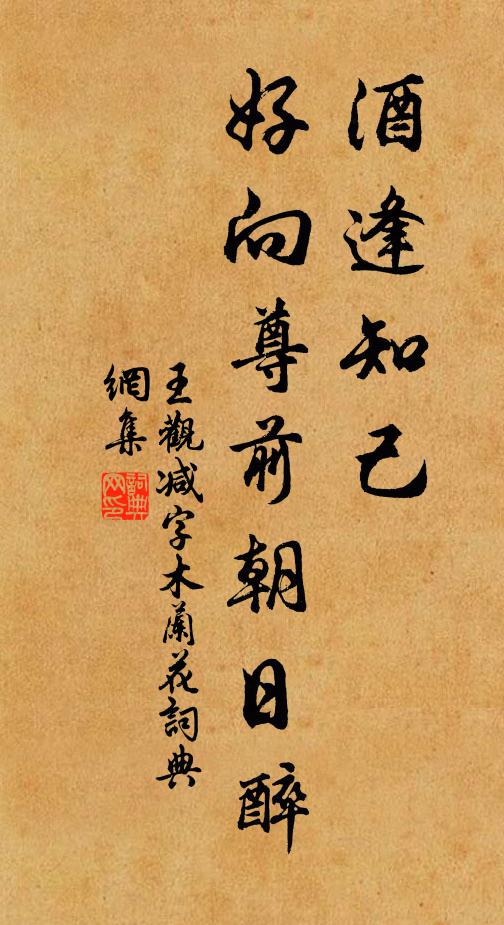 酒逢知己
好向尊前朝日醉
王觀减字木蘭花詞典
網集
詞典
网印